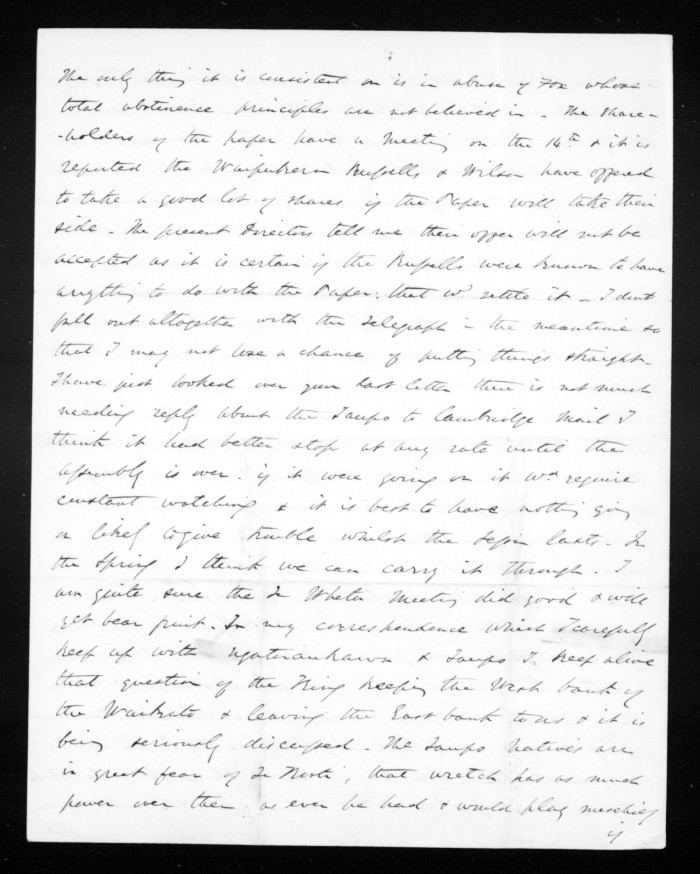 The only thing it is consistent on is in abuse of Fox whose
total abstinence principles are not believed in - The share-
-holders of the paper have a Meeting on the 14th & it is
reported the Waipukurau Russells & Wilson have offered
to take a good lot of shares if the Paper will take their
side - The present Directors tell me their offer will not be
accepted as it is certain if the Russells were known to have
anything to do with the Paper, that wd. settle it - I dont
fall out altogether with the Telegraph in the meantime so
that I may not lose a chance of putting things straight -
I have just looked over your last letter there is not much
needing reply about the Taupo to Cambridge Mail I
think it had better stop at any rate until the
Assembly is over. if it were going on it wd. require
constant watching & it is best to have nothing going
or likely to give trouble whilst the Session lasts - In
the Spring I think we can carry it through. I
am quite sure the Te Wheta Meeting did good & will
yet bear fruit. In my correspondence which I carefully
keep up with Ngatiraukawa & Taupo I keep alive
that question of the King keeping the West bank of
the Waikato & leaving the East bank to us & it is
being seriously discussed - The Taupo Natives are
in great fear of Te Kooti, that wretch has as much
power over them as ever he had & would play mischief
if